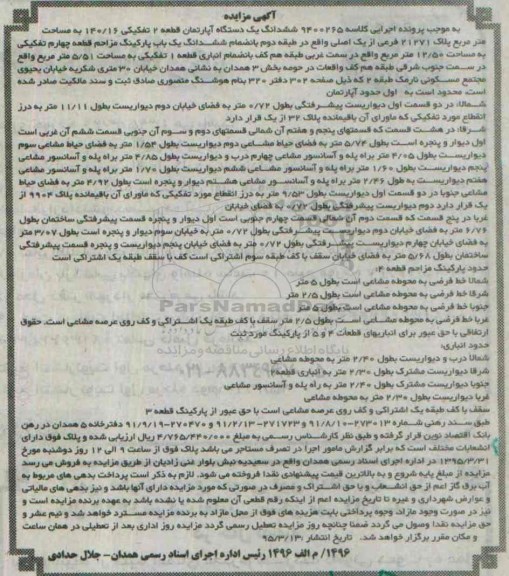 آگهی مزایده
به موجب پرونده اجرایی کلاسه ۹۴۰۰۲۶۵ ششدانگ یک دستگاه آپارتمان قطعه ۲ تفکیکی ۱۴۰/۱۶ به مساحت
متر مربع پلاک ۲۱۲۷۱ فرعی از یک اصلی واقع در طبقه دوم بانضمام ششدانگ یک باب پارکینگ مزاحم قطعه چهارم تفکیکی
به مساحت ۱۲/۵۰ متر مربع واقع در سمت غربی طبقه هم کف بانضمام انباری قطعه ۱ تفکیکی به مساحت ۵/۵۱ متر مربع واقع
در سمت جنوب شرقی طبقه هم کف واقعات در حومه بخش ۳ همدان به نشانی همدان خیابان ۳۰ متری شکریه خیابان یحیوی
مجتمع مسکونی نارمک طبقه ۲ که ذیل صفحه ۳۰۲ دفتر ۳۲۰ بنام هوشنگ منصوری صادق ثبت و سند مالکیت صادر شده
است. محدود است به اول حدود آپارتمان
شمالا: در دو قسمت اول دیواریست پیشرفتگی بطول ۰/۷۲ متر به فضای خیابان دوم دیواریست بطول ۱۱/۱۱ متر به درز
انقطاع مورد تفکیکی که ماورای آن باقیمانده پلاک ۳۲ از یک قرار دارد
شرقا: در هشت قسمت که قسمتهای پنجم و هفتم آن شمالی قسمتهای دوم و سوم آن جنوبی قسمت ششم آن غربی است
اول دیوار و پنجره است بطول ۵/۷۳ متر به فضای حیاط مشاعی دوم دیواریست بطول ۱/۵۴ متر به فضای حیاط مشاعی سوم
دیواریست بطول ۲/۰۵ متر براه پله و آسانسور مشاعی چهارم درب و دیواریست بطول ۲/۸۵ متر براه پله و آسانسور مشاعی
پنجم دیواریست بطول ۱/۶۰ متر براه پله و آسانسور مشاعی ششم دیواریست بطول ۱/۷۰ متر براه پله و آسانسور مشاعی
هفتم دیواریست به طول ۲/۴۶ متر براه پله و آسانسور مشاعی هشتم دیوار و پنجره است بطول ۴/۹۲ متر به فضای حیاط
مشاعی جنوبا در دو قسمت اول دیواریست بطول ۹/۵۲ متر به درز انقطاع مورد تفکیکی که ماورای آن باقیمانده پلاک ۹۹۰۴ از
یک قرار دارد دوم دیواریست پیشرفتگی بطول ۰/۷۲ به فضای خیابان
غربا در پنج قسمت که قسمت دوم آن شمالی قسمت چهارم جنوبی است اول دیوار و پنجره قسمت پیشرفتگی ساختمان بطول
۶/۷۶ متر به فضای خیابان دوم دیواریست پیشرفتگی بطول ۰/۷۲ متر به خیابان سوم دیوار و پنجره است بطول ۳/۰۷ متر
به فضای خیابان چهارم دیواریست پیشرفتگی بطول ۰/۷۲ متر به فضای خیابان پنجم دیواریست و پنجره قسمت پیشرفتگی
ساختمان بطول ۵/۶۸ متر به فضای خیابان سقف با کف طبقه سوم اشتراکی است کف با سقف طبقه یک اشتراکی است
حدود پارکینگ مزاحم قطعه ۴:
شمالا خط فرضی به محوطه مشاعی است بطول ۵ متر
شرقا خط فرضی به محوطه مشاعی است بطول ۲/۵ متر
جنوبا خط فرضی به محوطه مشاعی است بطول ۵ متر
غربا خط فرضی به محوطه مشاعی است بطول ۲/۵ متر سقف با کف طبقه یک اشتراکی و کف روی عرصه مشاعی است. حقوق
ارتفاقی با حق عبور برای انباریهای قطعات ۴ و ۵ از پارکینگ مورد ثبت
حدود انباری:
شمالا درب و دیواریست بطول ۲/۳۰ متر به محوطه مشاعی
شرقا دیواریست مشترک بطول ۲/۳۰ متر به انباری قطعه۲
جنوبا دیواریست مشترک بطول ۲/۴۰ متر به راه پله و آسانسور مشاعی
غربا دیواریست بطول ۲/۳۰ متر به محوطه مشاعی
سقف با کف طبقه یک اشتراکی و کف روی عرصه مشاعی است با حق عبور از پارکینگ قطعه ۳
طبق سند رهنی شماره ۲۷۳۰۱۳-۹۱/۸/۱۰ و ۲۷۱۷۲۳-۹۱/۲/۱۳ و ۲۷۰۴۷۰-۹۱/۹/۱۹ دفترخانه ۵ همدان در رهن
بانک اقتصاد نوین قرار گرفته و طبق نظر کارشناس رسمی به مبلغ ۴/۷۶۵/۴۴۰/۰۰۰ ریال ارزیابی شده و پلاک فوق دارای
انشعابات مختلف است که برابر گزارش مامور اجرا در تصرف مستاجر می باشد پلاک فوق از ساعت ۹ الی ۱۲ روز دوشنبه مورخ
۱۳۹۵/۳/۳۱ در اداره اجرای اسناد رسمی همدان واقع در سعیدیه نبش بلوار غنی زادیان از طریق مزایده به فروش می رسد
مزایده از مبلغ پایه شروع و به بالاترین قیمت پیشنهادی نقدا فروخته می شود. لازم به ذکر است پرداخت بدهی های مربوط به
آب برق گاز اعم از حق انشعاب و یا حق اشتراک و مصرف در صورتی که مورد مزایده دارای آنها باشد و نیز بدهی های مالیاتی
و عوارض شهرداری و غیره تا تاریخ مزایده اعم از اینکه رقم قطعی آن معلوم شده یا نشده باشد به عهده برنده مزایده است و
نیز در صورت وجود مازاد، وجوه پرداختی بابت هزینه های فوق از محل مازاد به برنده مزایده مسترد خواهد شد و نیم عشر و
حق مزایده نقدا وصول می گردد ضمنا چنانچه روز مزایده تعطیل رسمی گردد مزایده روز اداری بعد از تعطیلی در همان ساعت
و مکان مقرر برگزار خواهد شد. تاریخ انتشار :۹۵/۳/۱۳
۱۴۹۶/ م الف ۱۴۹۶ رئیس اداره اجرای اسناد رسمی همدان- جلال حدادی
ParsNamadData
پایگاه اطلاع رسانی مناقصه و مزایده